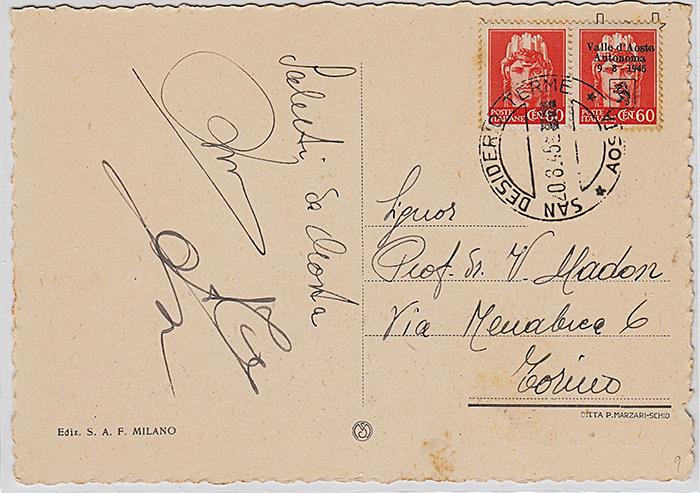 Saluti da Aosta
POSTE ITALIANE CENT. 60
Valle d'Aosta
Autonoma
9-8-1945
POSTE ITALIANE CENT. 60
SAN DESIDERIO TERME * AOSTA *
20.8.45
Signor
Prof. Dr. V. Madon
Via Menabrea 6
Torino
DITTA P. MARZARI-SCHIO
Ediz. S. A. F. MILANO